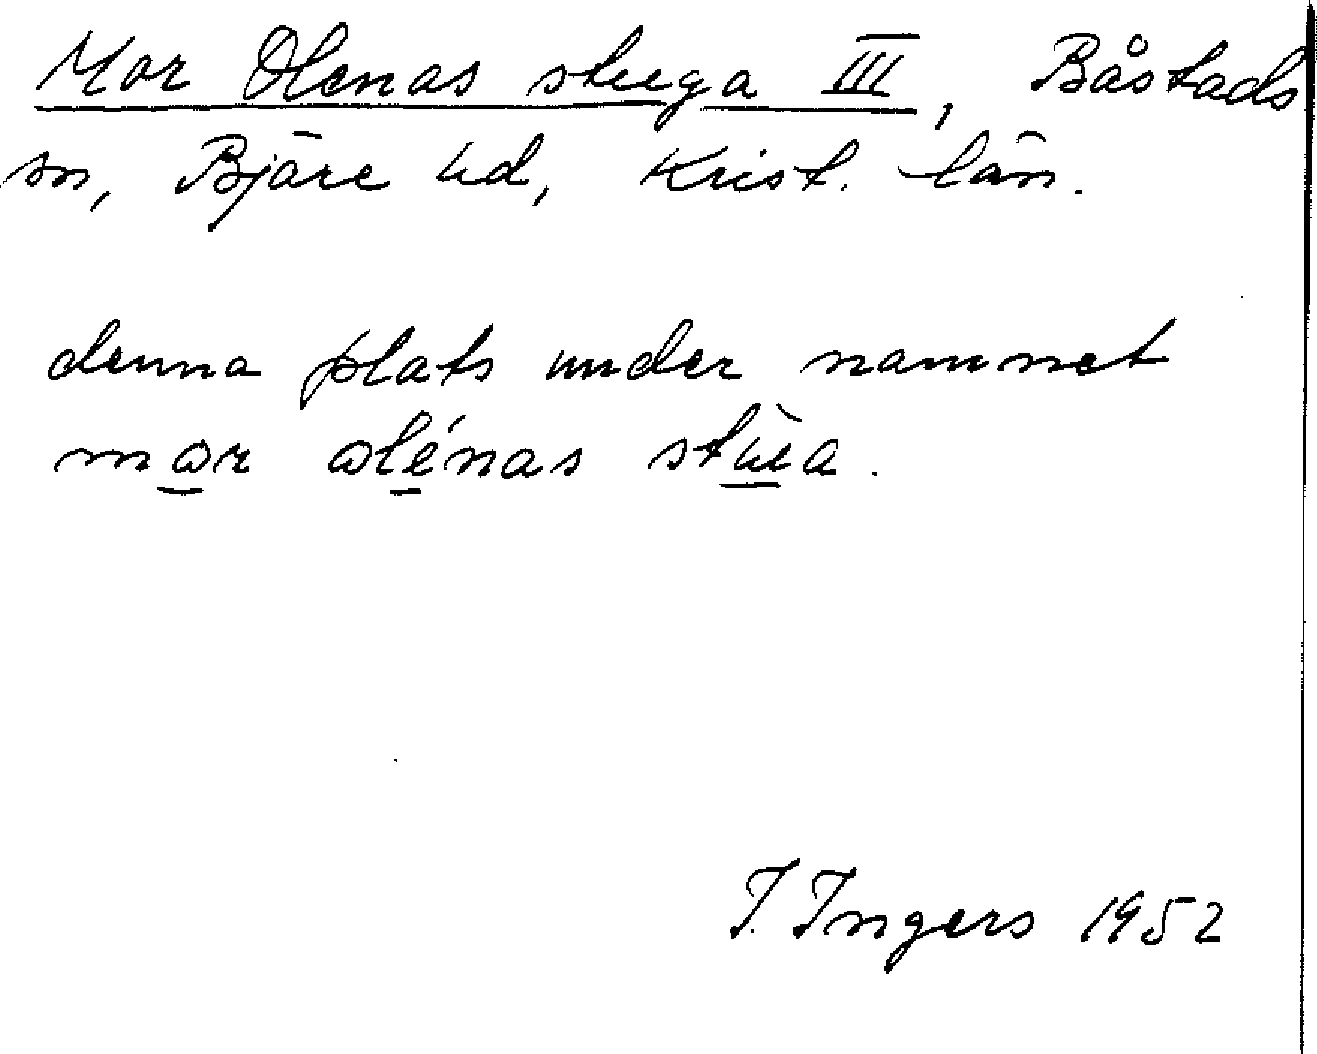 Mor Olenas stuga III, Båstads
sn, Bjäre hd, Krist. län.
denna plats under namnet
mor olénas
I. Ingers 1952